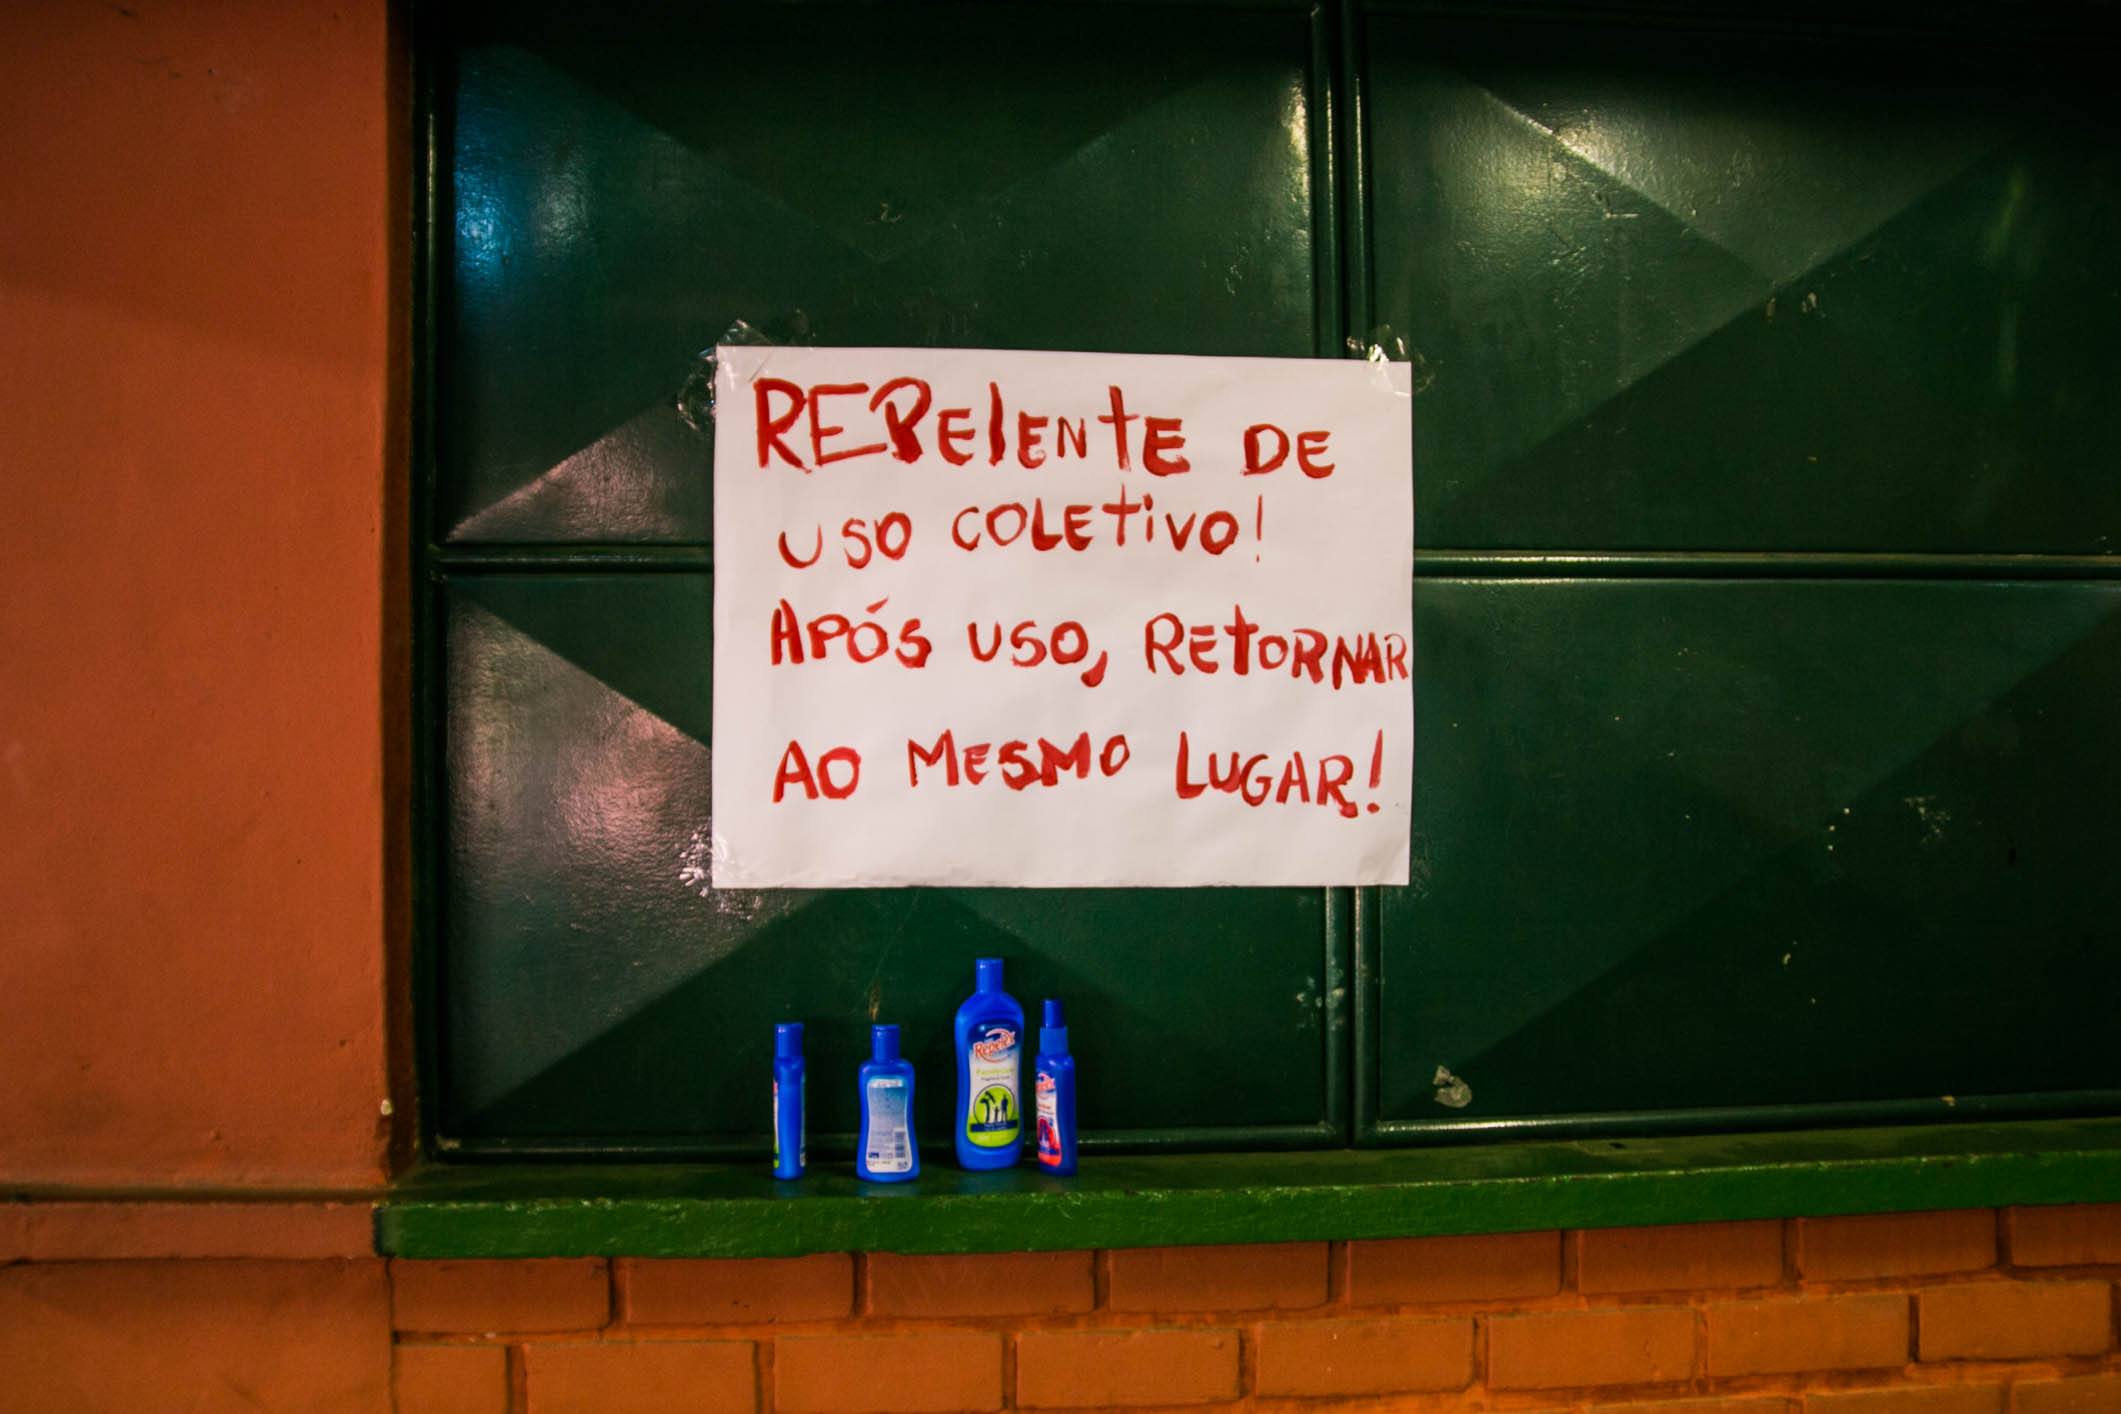 REPElENTE DE
USO COLETiVO!
APÓS USO, RETORNAR
AO MESMO LUGAR!
Repelex
Repelex